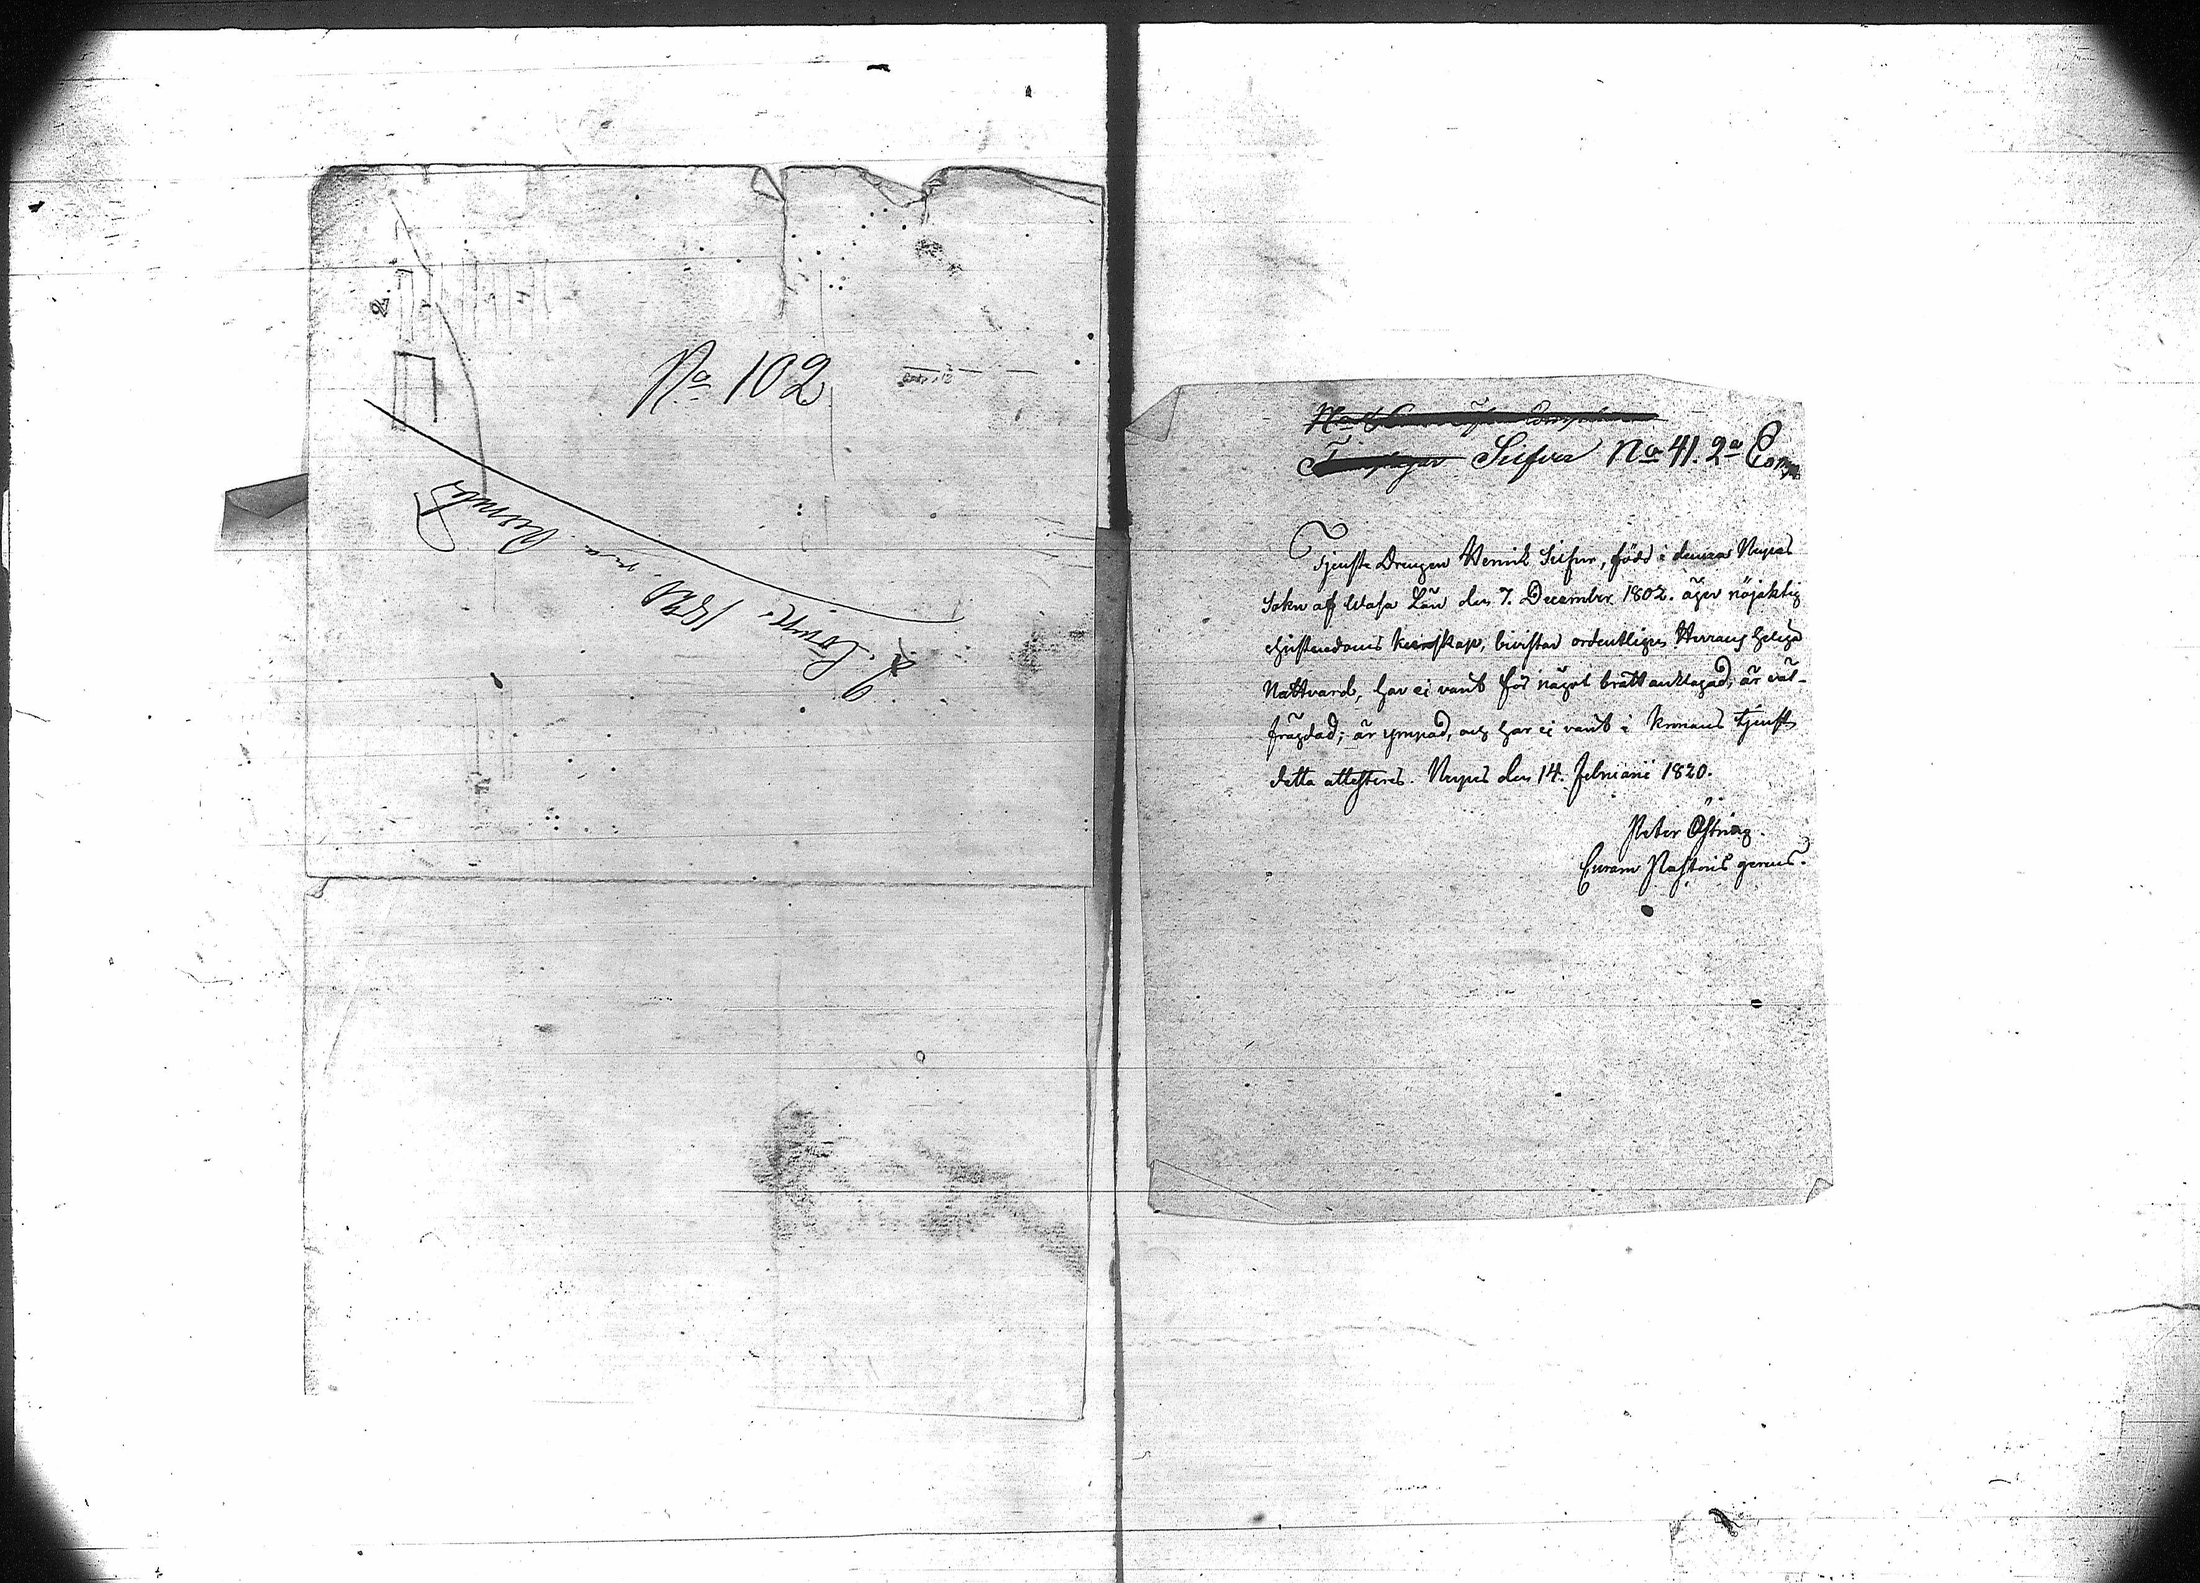 2.
Nº 102
2 Comp: 1820.
Silfver Nº 41. 2ª Comp
Tjenste Drengen Henrik Silfver, född i denna Nerpes
Sokn af Wasa Län den 7. December 1802. äger nöjaktig
christendoms kunskap, bevistar ordentligen Herrans heliga
Nattvard, har ei varit för något brått anklagad, är väl-
frägdad; är ympad, och har ei varit i Kronans tjenst
detta attesteres. Nerpes den 14. Februarii 1820.
Peter Östring.
Curam Pastoris gerens.